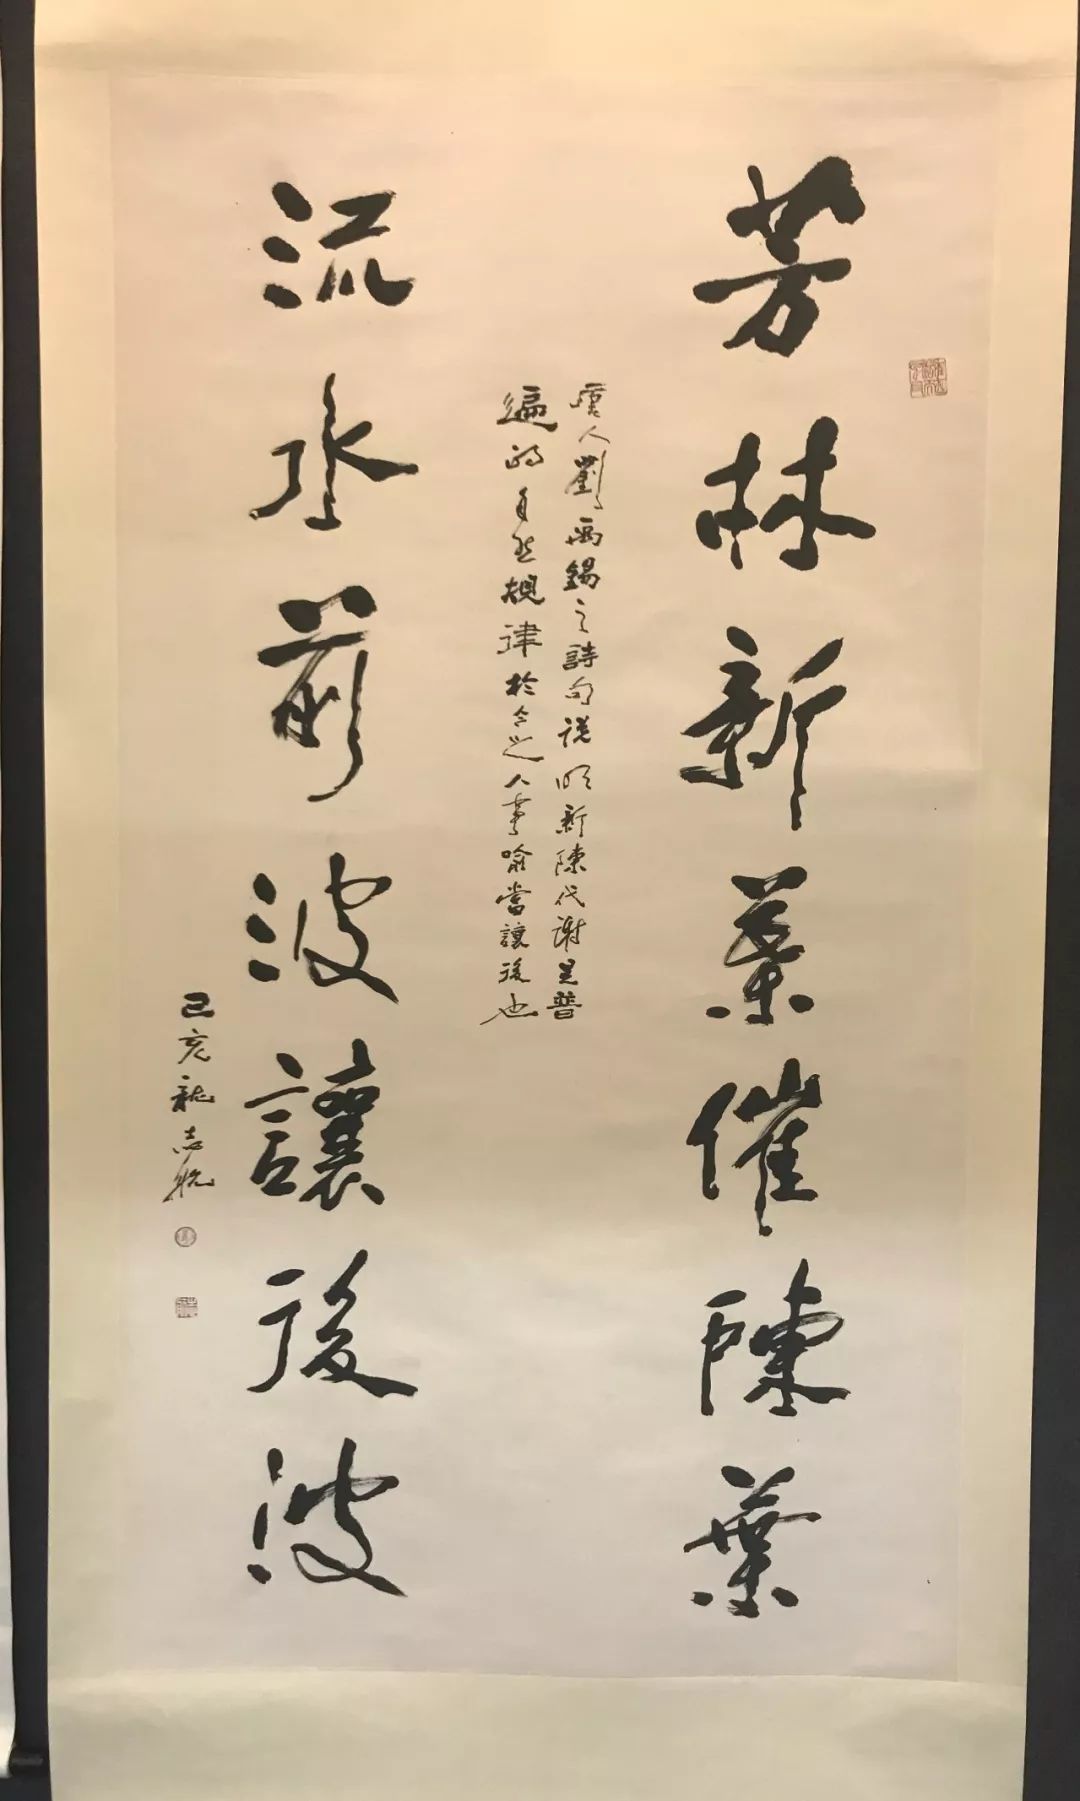 芳林新葉催陳葉
唐人劉禹錫之詩句説明新陳代謝是普
遍的自然規律於今之人事喻當讓後也
流水前波讓後波
己亥龍志航